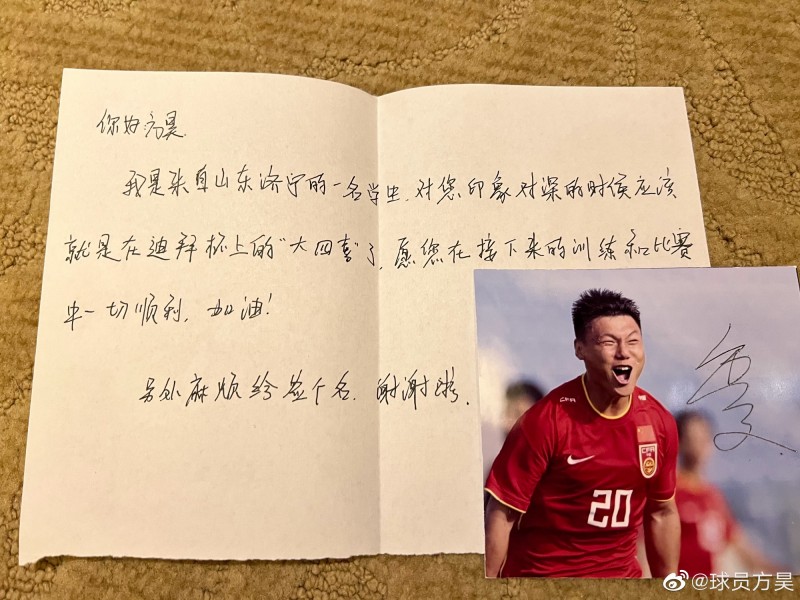 你好方昊.
我是来自山东济宁的一名学生,对您印象对深的时候应该
就是在迪拜杯上的“大四喜”了,愿您在接下来的训练和比赛
中一切顺利,加油!
另外麻烦给签个名,谢谢啦.
CFA
20
@球员方昊